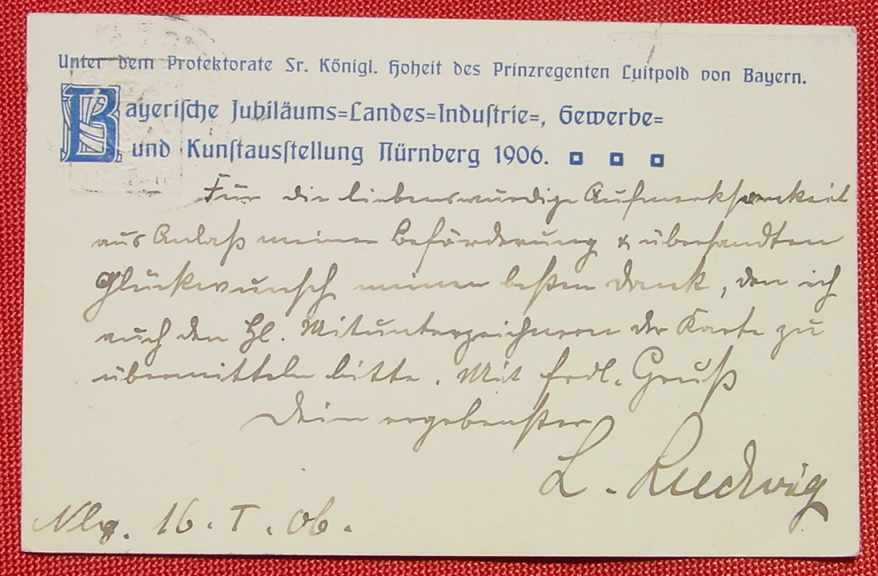 Unter dem Protektorate Sr. Königl. Hoheit des Prinzregenten Luitpold von Bayern.
Bayerische Jubiläums=Landes=Industrie=, Gewerbe=
und Kunstausstellung Nürnberg 1906.
Für die liebenswürdige Aufmerksamkeit
aus Anlaß meiner Beförderung & übersandten
Glückwunsch meinen besten Dank, den ich
auch den Hl. Mitunterzeichnern der Karte zu
übermitteln bitte. Mit frdl. Gruß
Dein ergebenster
L. Ludwig
Nbg. 16. I. 06.